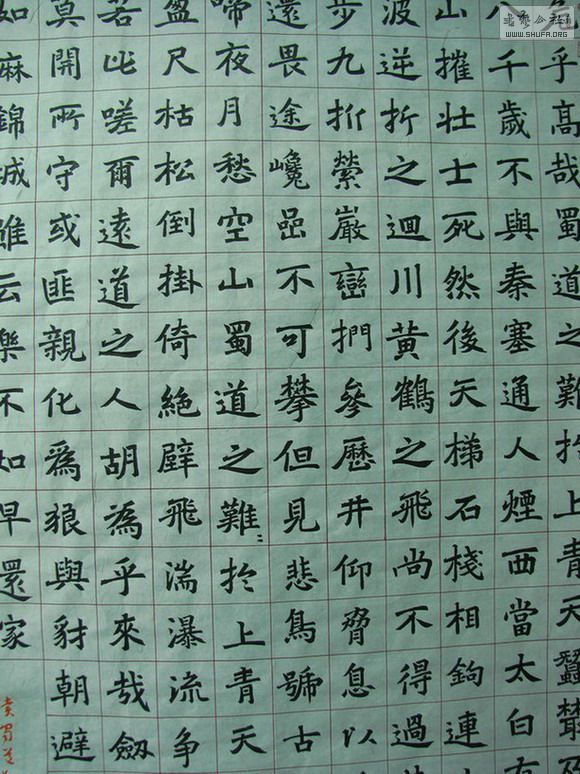 乎高哉蜀道之難於上青天蠶叢
千歲不與秦塞通人煙西當太白有
山摧壯士死然後天梯石棧相鉤連
波逆折之迴川黃鶴之飛尚不得過
步九折縈巖巒捫參歷井仰脅息以
還畏途巉嵒不可攀但見悲鳥號古
啼夜月愁空山蜀道之難於上青天
盈尺枯松倒掛倚絕壁飛湍瀑流争
若此嗟爾遠道之人胡為乎來哉劔
莫開所守或匪親化爲狼與豺朝避
如麻錦城雖云樂不如早還家
WWW.SHUFA.ORG